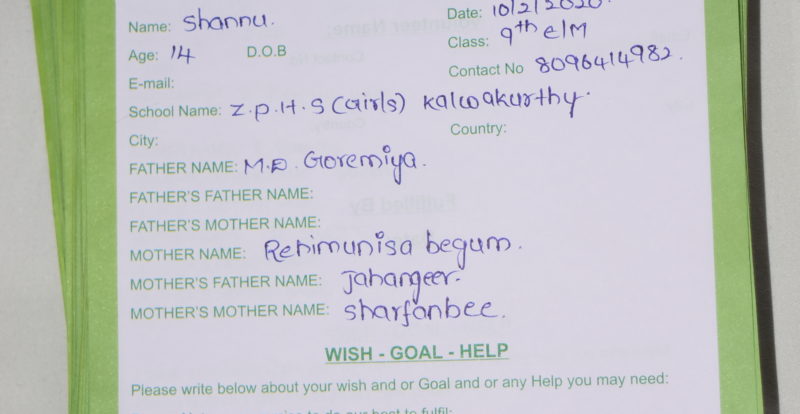 Name: Shannu. Date: 10/2/2020.
Age: 14 D.O.B Class: 9th e/M
E-mail: Contact No 8096414982.
School Name: Z.P.H.S (Girls) Kalwakurthy.
City: Country:
FATHER NAME: M.D. Goremiya.
FATHER'S FATHER NAME:
FATHER'S MOTHER NAME:
MOTHER NAME: Rehimunisa begum.
MOTHER'S FATHER NAME: Jahangeer.
MOTHER'S MOTHER NAME: Sharfanbee.
WISH - GOAL - HELP
Please write below about your wish and or Goal and or any Help you may need: